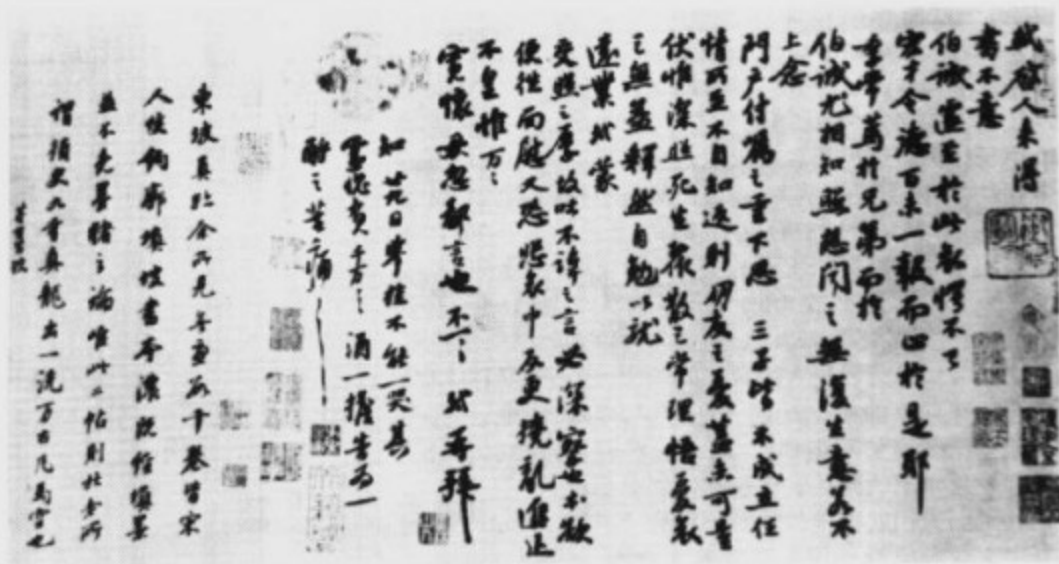 軾啓人來得
書不意
伯誠遽至於此哀愕不已
宏才令德百未一報而止於是耶
季常篤於兄弟而於
伯誠尤相知照想聞之無復生意若不
上念
門戶付囑之重下思三子皆不成立任
情所至不自知返則朋友之憂蓋未可量
伏惟深照死生聚散之常理悟憂哀
之無益釋然自勉以就
遠業軾蒙
交照之厚故吐不諱之言必深察也本欲
便往面慰又恐悲哀中反更撓亂進止
不皇惟萬萬
寬懷毋忽鄙言也不一一軾再拜
知廿九日舉挂不能一哭其
靈愧負千万千万酒一擔告為一
酹之苦痛苦痛
東坡真跡余所見無慮數十卷皆宋
人雙鉤廓填坡書本濃既經填墨
益不免墨豬之論唯此二帖則杜老所
謂須臾九重真龍出一洗萬古凡馬空也